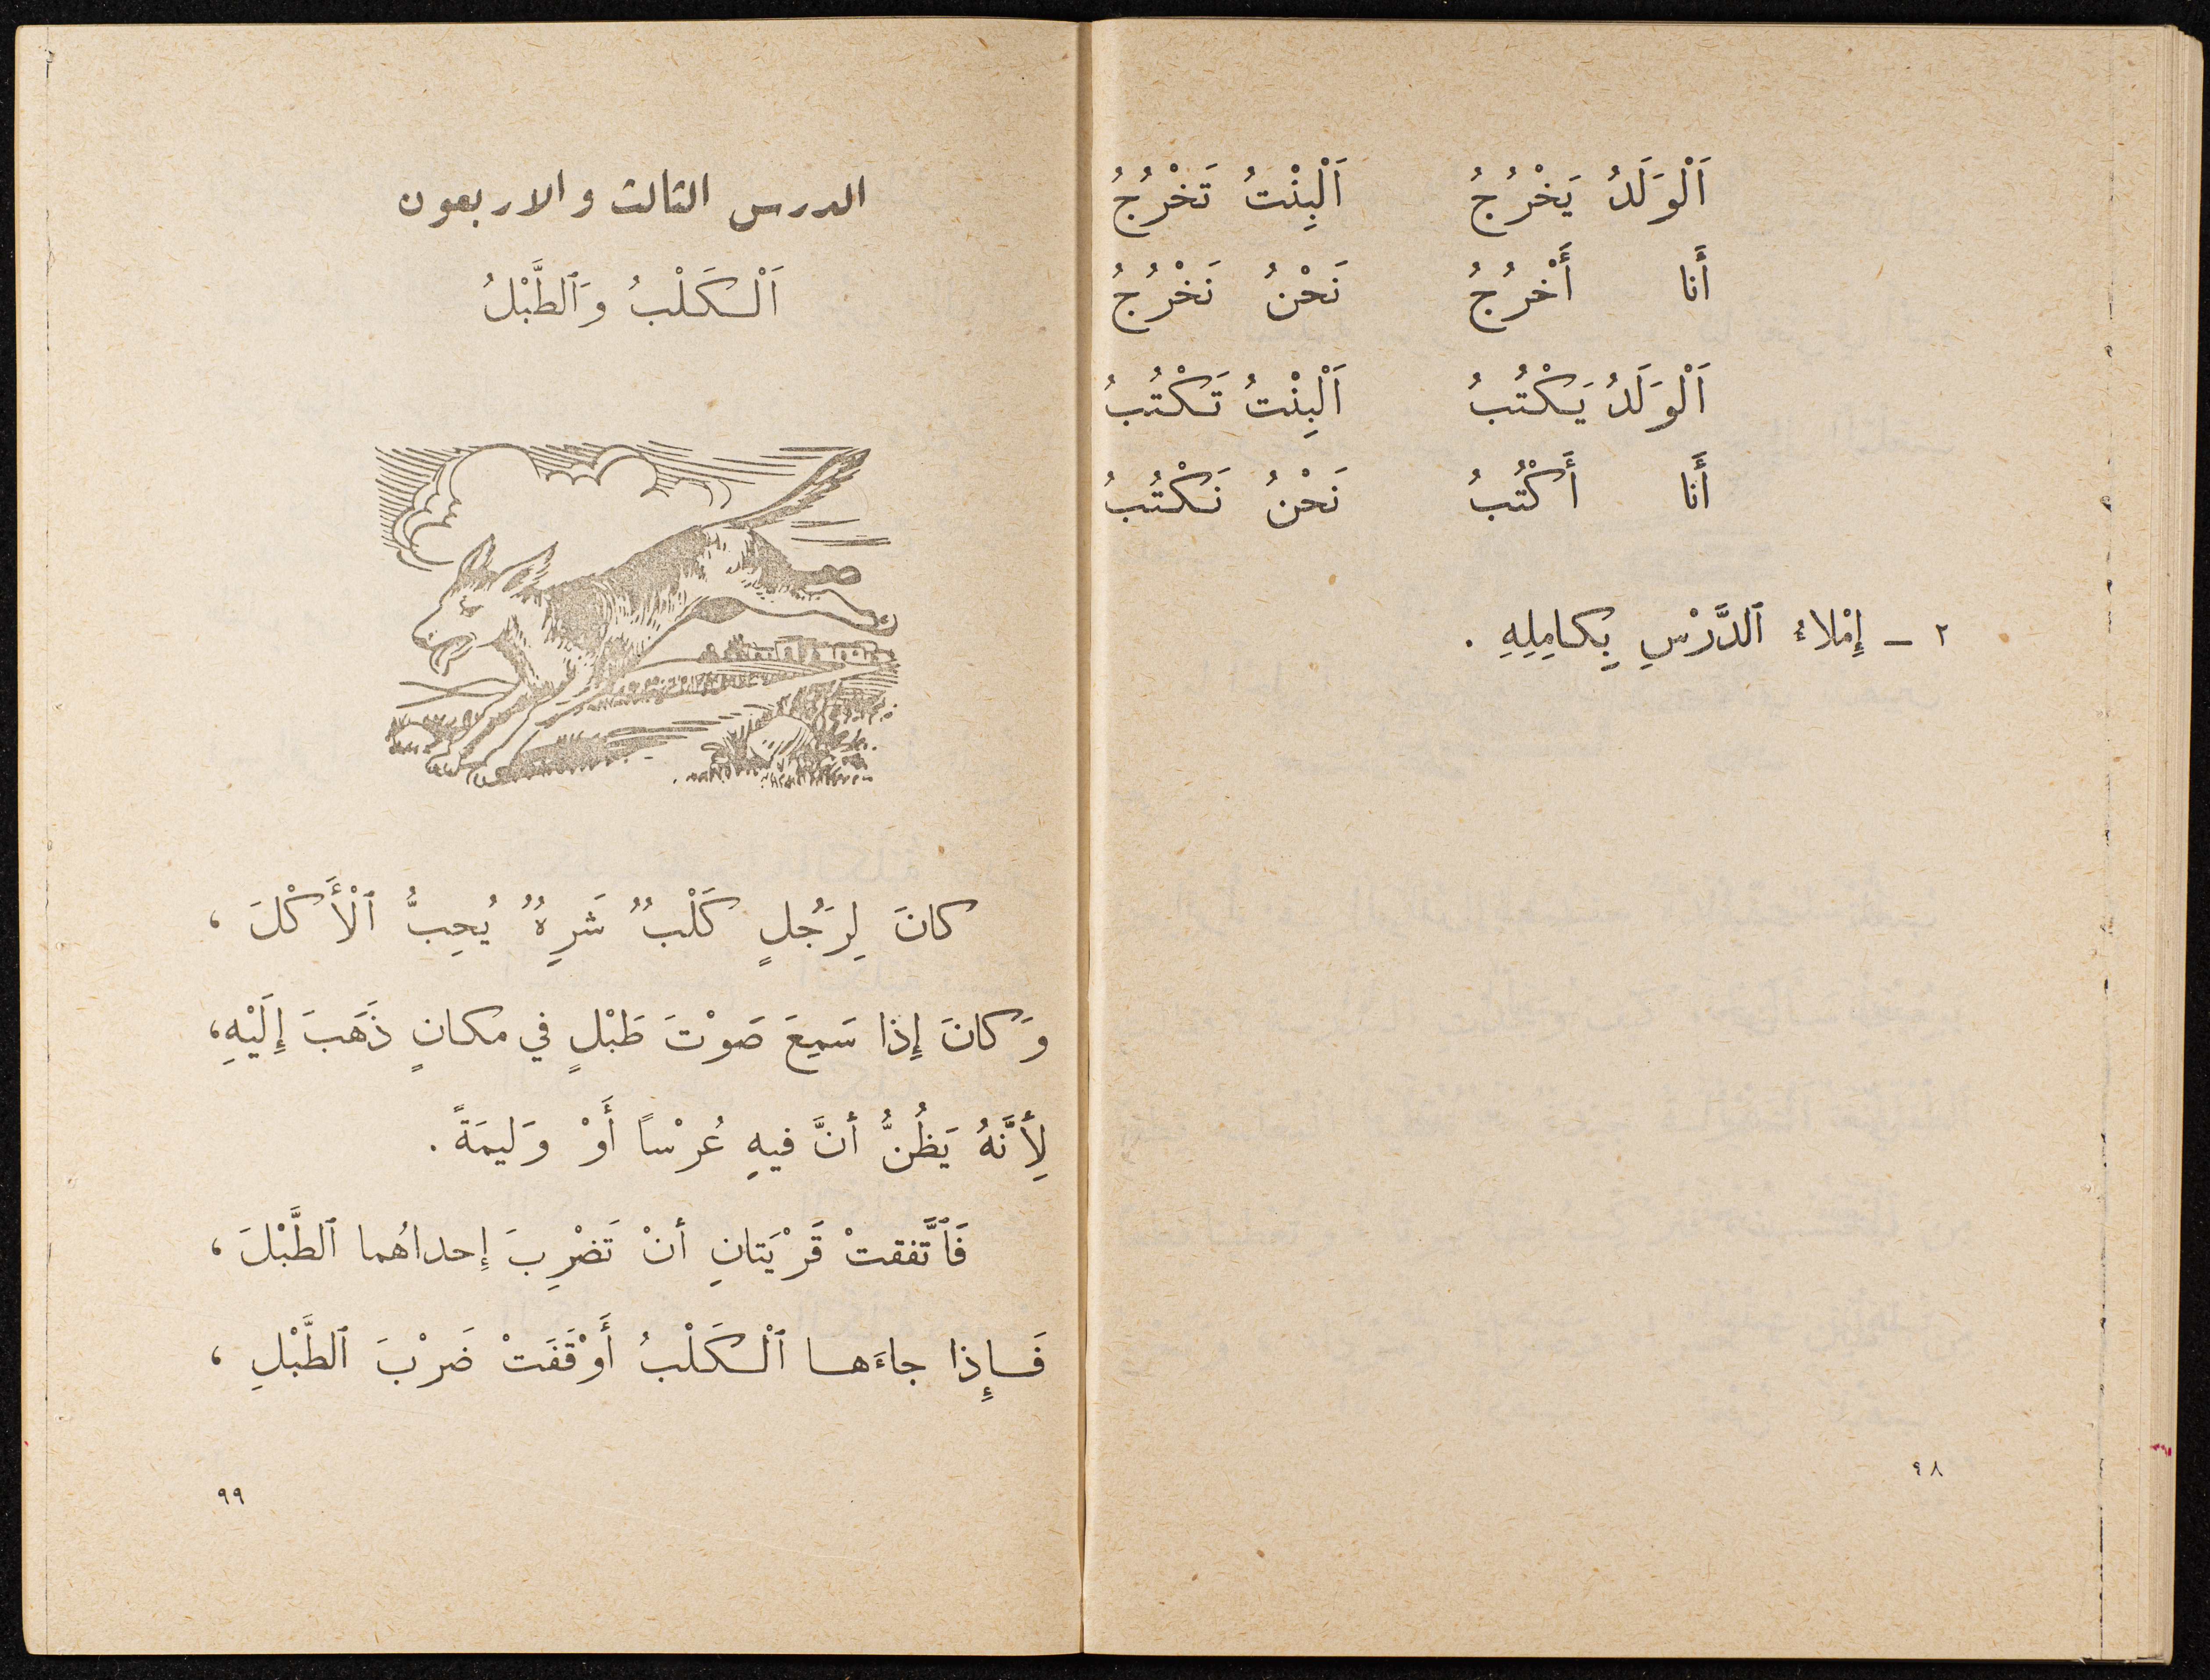 اَلْوَلَدُ يَخْرُجُ اَلْبِنْتُ تَخْرُجُ
أَنا أَخْرُجُ نَحْنُ نَخْرُجُ
اَلْوَلَدُ يَكْتُبُ اَلْبِنْتُ تَكْتُبُ
أَنا أَكْتُبُ نَحْنُ نَكْتُبُ
٢ - إِمْلاءُ ٱلدَّرْسِ بِكامِلِهِ .
٩٨
الدرس الثالث والاربعون
اَلْكَلْبُ وَٱلطَّبْلُ
كانَ لِرَجُلٍ كَلْبٌ شَرِهٌ يُحِبُّ ٱلْأَكْلَ ،
وَكانَ إِذا سَمِعَ صَوْتَ طَبْلٍ في مكانٍ ذَهَبَ إِلَيْهِ،
لِأَنَّهُ يَظُنُّ أنَّ فيهِ عُرْساً أَوْ وَليمَةً .
فَٱتَّفقتْ قَرْيَتانِ أنْ تَضْرِبَ إِحداهُما ٱلطَّبْلَ ،
فَإِذا جاءَها ٱلْكَلْبُ أَوْقَفَتْ ضَرْبَ ٱلطَّبْلِ ،
٩٩